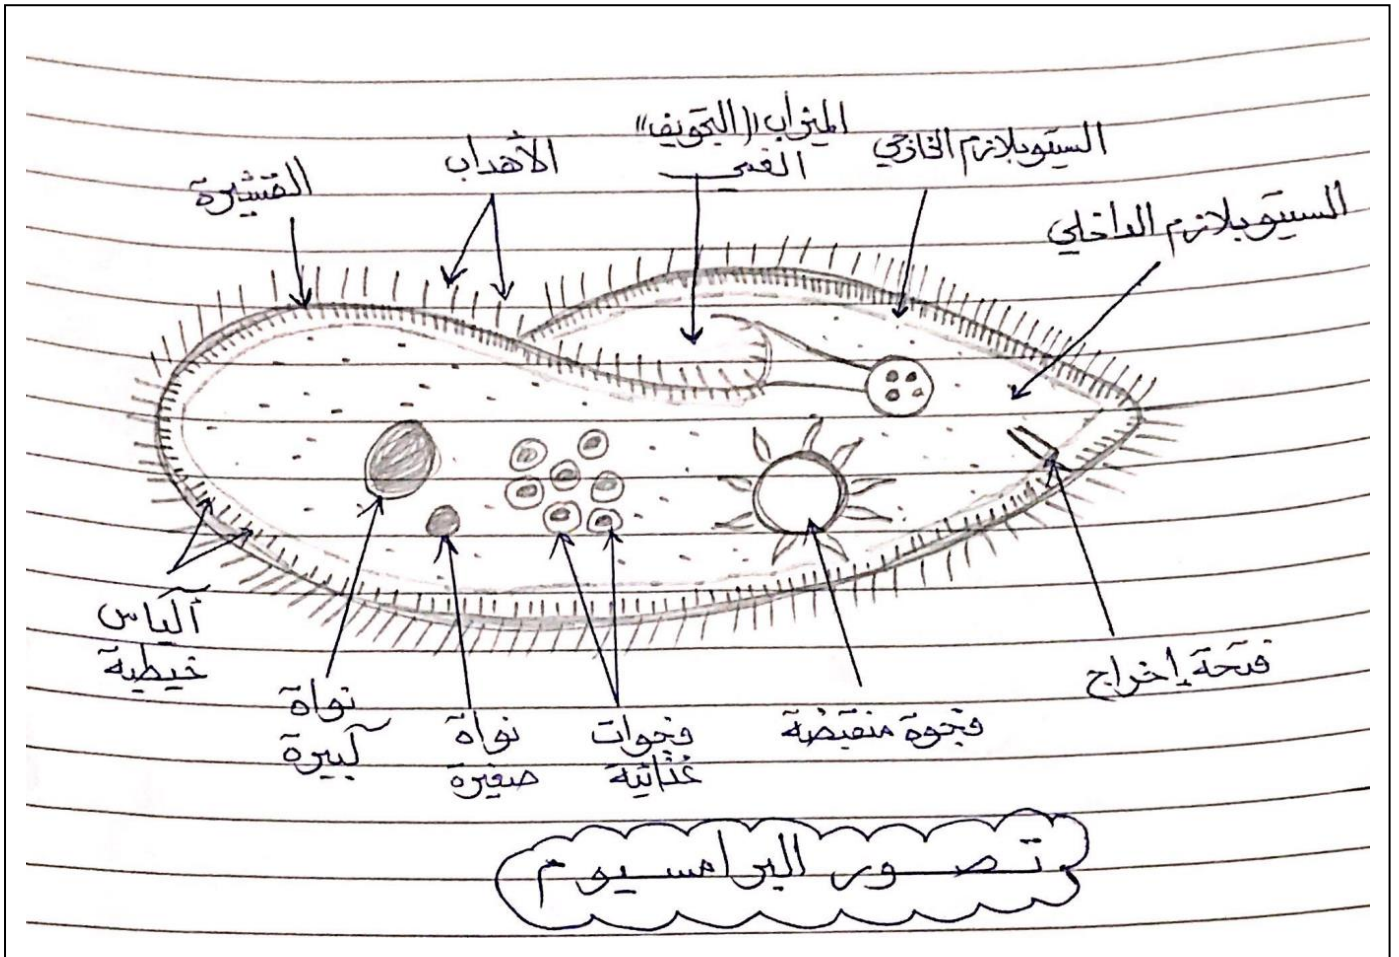 الميزاب "(التجويف"
الفمي
السيتوبلازم الخارجي
الأهداب
القشيرة
السيتوبلازم الداخلي
أكياس
خيطية
نواة
كبيرة
نواة
صغيرة
فجوات
غذائية
فجوة منقبضة
فتحة إخراج
تصور البرامسيوم